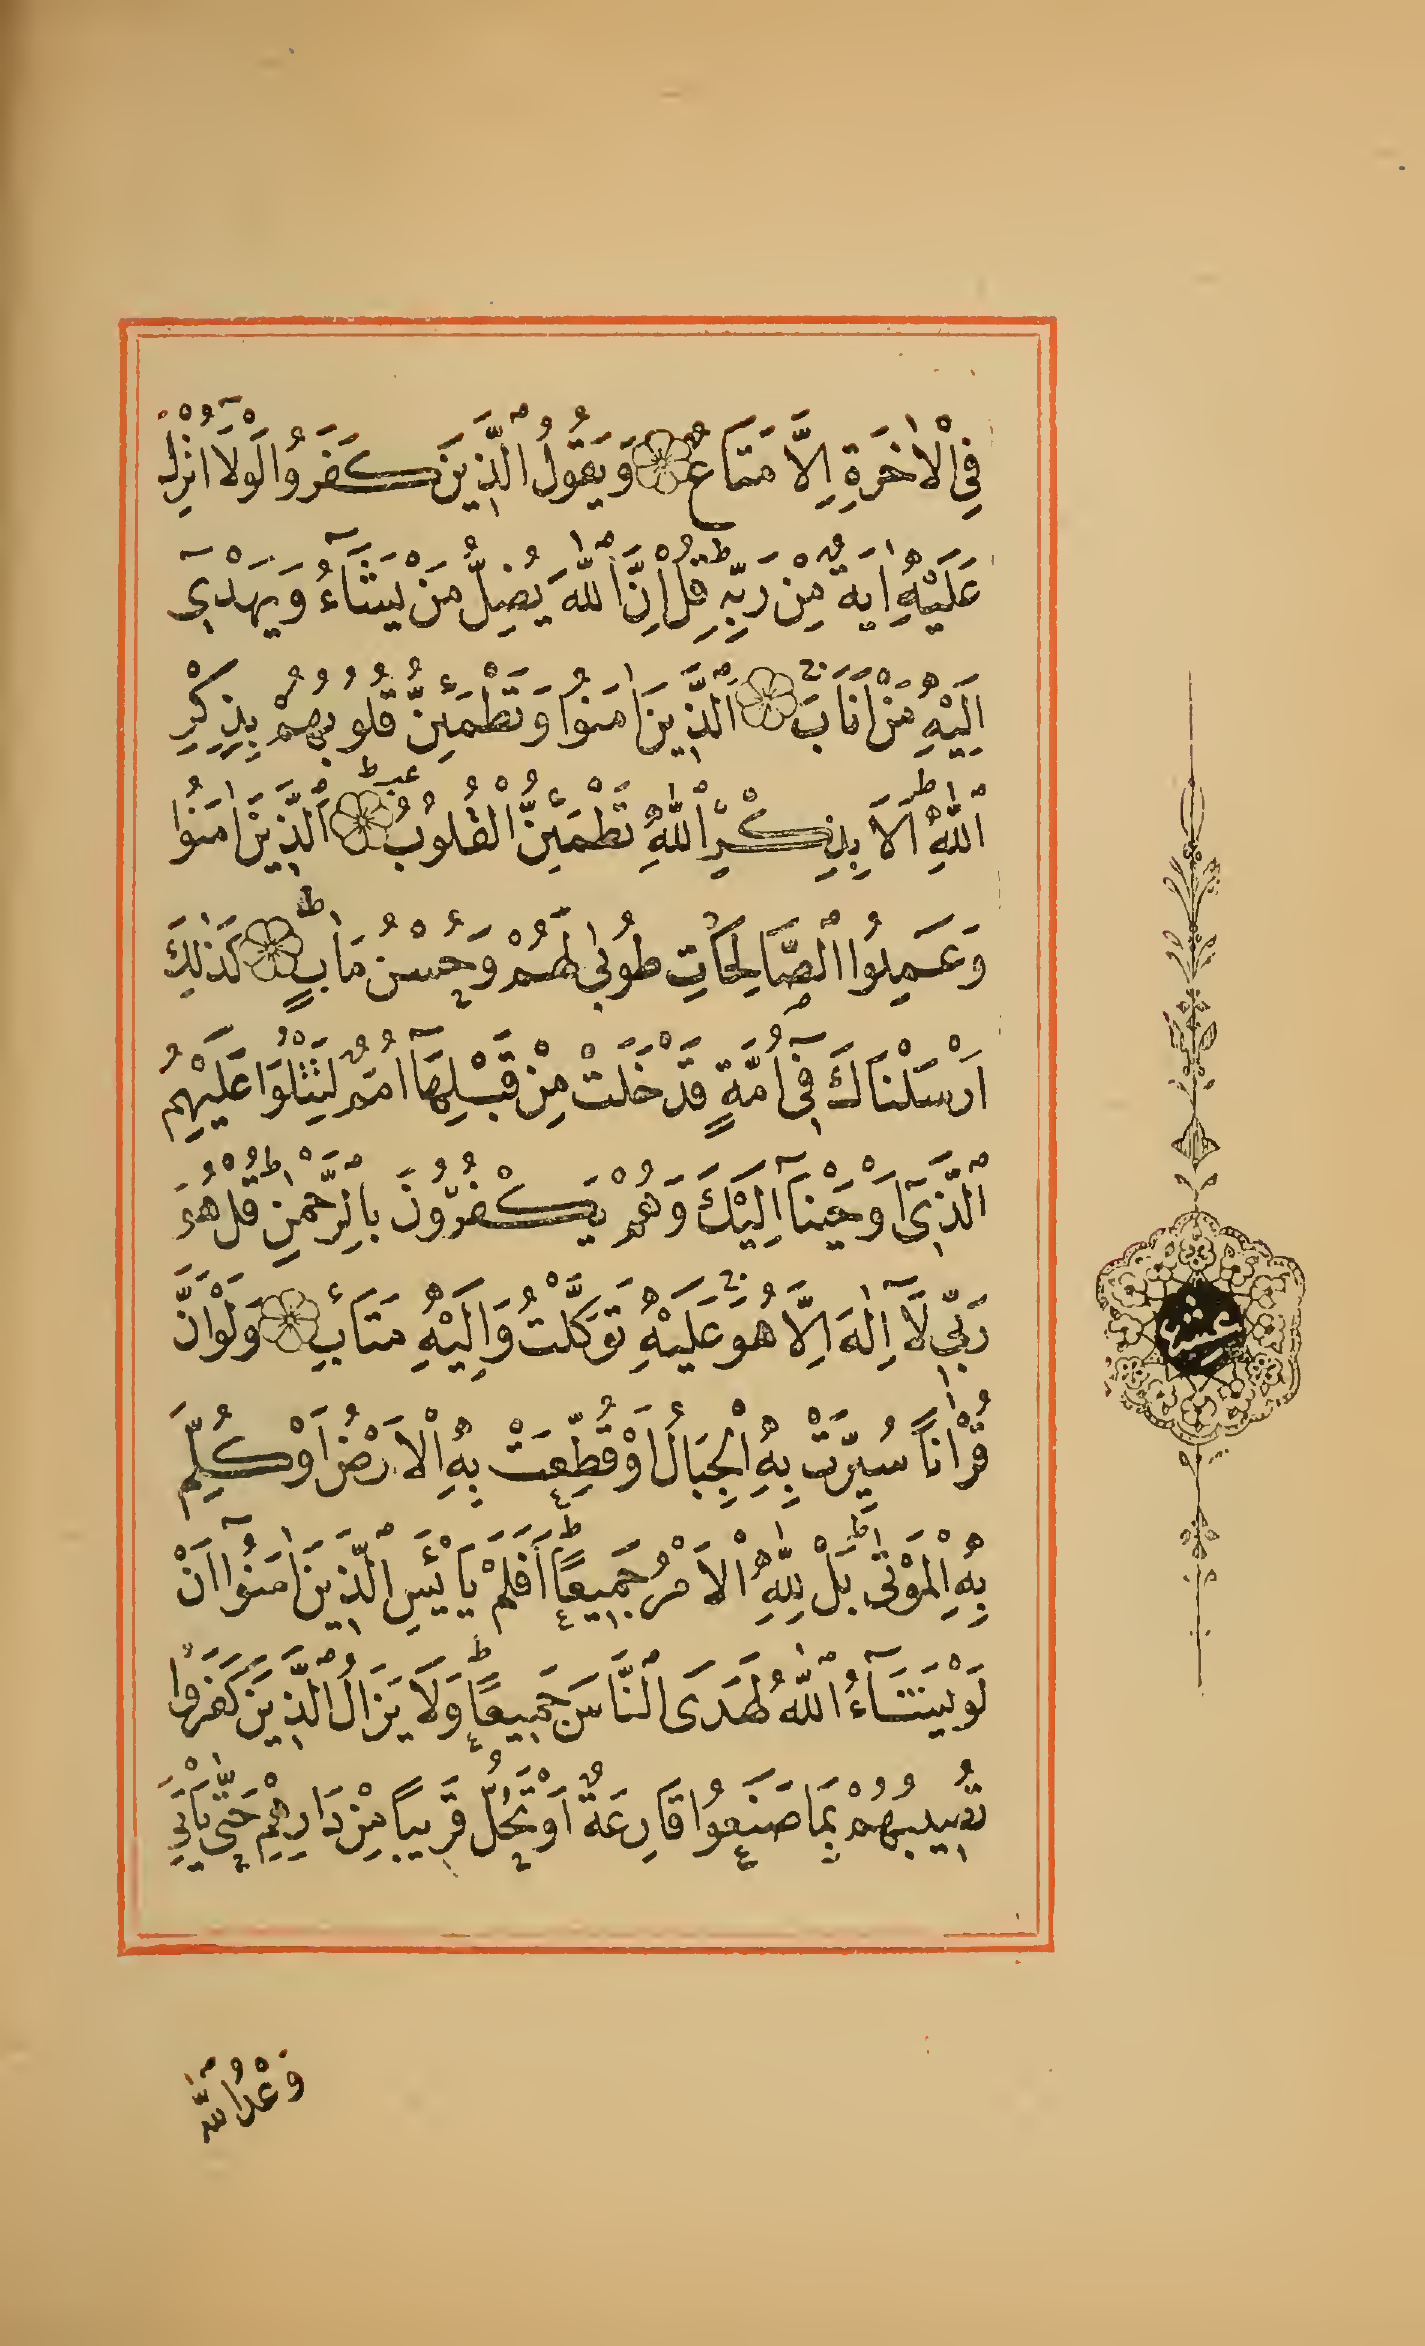 فِي الْاٰخِرَةِ اِلَّا مَتَاعٌ ۝ وَيَقُولُ الَّذِينَ كَفَرُوا لَوْلَآ اُنْزِلَ
عَلَيْهِ اٰيَةٌ مِنْ رَبِّهِ ط قُلْ اِنَّ اللّٰهَ يُضِلُّ مَنْ يَشَآءُ وَيَهْدِىٓ
اِلَيْهِ مَنْ اَنَابَ ۝ اَلَّذِينَ اٰمَنُوا وَتَطْمَئِنُّ قُلُوبُهُمْ بِذِكْرِ
اللّٰهِ ط اَلَا بِذِكْرِ اللّٰهِ تَطْمَئِنُّ الْقُلُوبُ ط ۝ اَلَّذِينَ اٰمَنُوا
وَعَمِلُوا الصَّالِحَاتِ طُوبٰى لَهُمْ وَحُسْنُ مَاٰبٍ ط ۝ كَذٰلِكَ
اَرْسَلْنَاكَ فِىٓ اُمَّةٍ قَدْ خَلَتْ مِنْ قَبْلِهَآ اُمَمٌ لِتَتْلُوَا عَلَيْهِمُ
الَّذِىٓ اَوْحَيْنَآ اِلَيْكَ وَهُمْ يَكْفُرُونَ بِالرَّحْمٰنِ ط قُلْ هُوَ
رَبِّى لَآ اِلٰهَ اِلَّا هُوَ ج عَلَيْهِ تَوَكَّلْتُ وَاِلَيْهِ مَتَابِ ۝ وَلَوْ اَنَّ
قُرْاٰنًا سُيِّرَتْ بِهِ الْجِبَالُ اَوْ قُطِّعَتْ بِهِ الْاَرْضُ اَوْ كُلِّمَ
بِهِ الْمَوْتٰى ط بَلْ لِلّٰهِ الْاَمْرُ جَمِيعًا ط اَفَلَمْ يَايْئَسِ الَّذِينَ اٰمَنُوآ اَنْ
لَوْ يَشَآءُ اللّٰهُ لَهَدَى النَّاسَ جَمِيعًا ط وَلَا يَزَالُ الَّذِينَ كَفَرُوا
تُصِيبُهُمْ بِمَا صَنَعُوا قَارِعَةٌ اَوْ تَحُلُّ قَرِيبًا مِنْ دَارِهِمْ حَتّٰى يَاْتِىَ
وَعْدُ اللّٰهِ